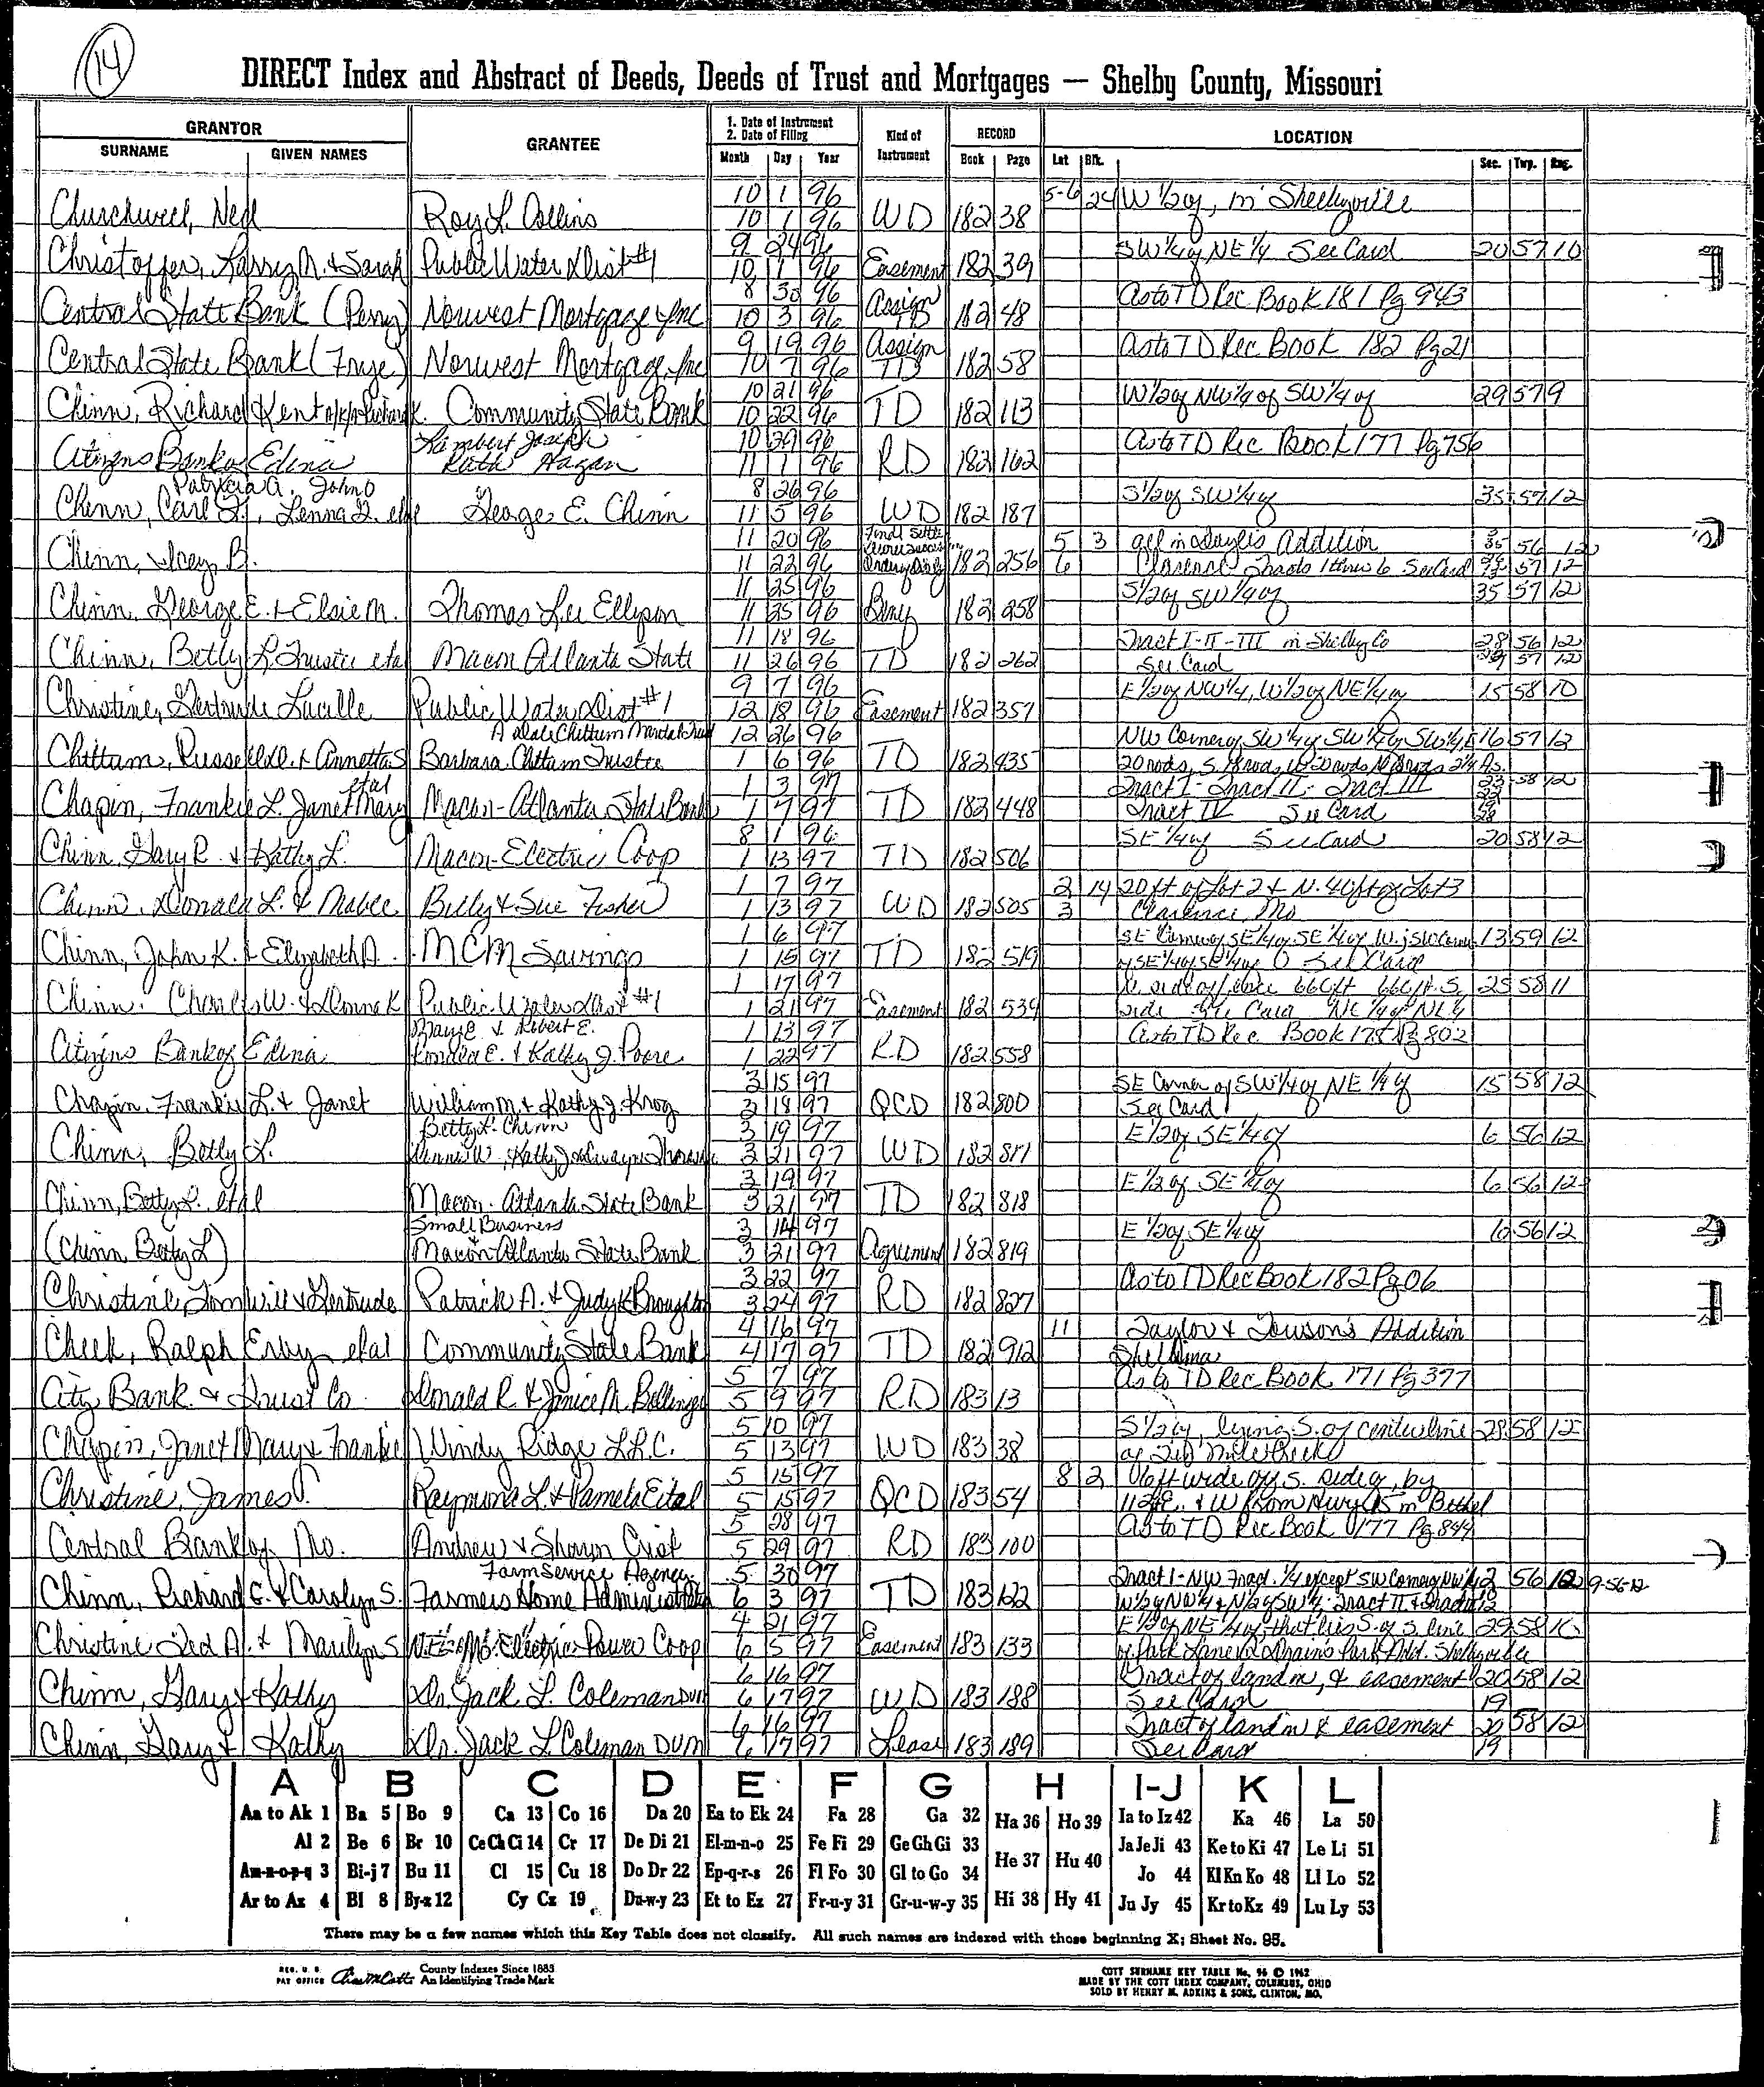 14
DIRECT Index and Abstract of Deeds, Deeds of Trust and Mortgages — Shelby County, Missouri
GRANTOR GRANTEE 1. Date of Instrument 2. Date of Filing Kind of Instrument RECORD LOCATION
SURNAME GIVEN NAMES Month Day Year Book Page Lot Blk. Sec. Twp. Rng.
10 1 96 5-6 24 W 1/2 of, in Shelbyville
Churchwell, Neil Roy L. Collins 10 1 96 WD 182 38
9 24 96 SW 1/4 of NE 1/4 See Card 20 57 10
Christoffer, Larry M. & Sarah Public Water Dist #1 10 1 96 Easement 182 39
8 30 96 As to TD Rec Book 181 Pg 943
Central State Bank (Perry) Norwest Mortgage Inc 10 3 96 Assign TD 182 48
9 19 96 As to TD Rec Book 182 Pg 21
Central State Bank (Frye) Norwest Mortgage, Inc 10 7 96 Assign TD 182 58
10 21 96 W 1/2 of NW 1/4 of SW 1/4 of 29 57 9
Chinn, Richard Kent a/k/a Richard K. Community State Bank 10 22 96 TD 182 113
Lambert Joseph 10 29 96 As to TD Rec Book 177 Pg 756
Citizens Bank of Edina Ruth Hagan 11 1 96 RD 182 162
Patricia A. John O 8 26 96 S 1/2 of SW 1/4 of 35 57 12
Chinn, Carl F., Lenna L. etal George E. Chinn 11 5 96 WD 182 187
11 20 96 Final Settle 5 3 All in Addition 35 56 12
Chinn, B. 11 22 96 182 256 6 Clarence Tracts 1 thru 6 See Card 57 12
11 25 96 S 1/2 of SW 1/4 of 35 57 12
Chinn, George E. & Elsie M. Thomas Lee Ellison 11 25 96 182 258
11 18 96 Tract I-II-III in Shelby Co 28 56 12
Chinn, Betty L Trustee etal Macon Atlanta State 11 26 96 TD 182 262 See Card 57 12
9 7 96 E 1/2 of NW 1/4, W 1/2 of NE 1/4 of 15 58 10
Christine, Gertrude Lucille Public Water Dist #1 12 18 96 Easement 182 357
A Dale Chittum 12 26 96 NW Corner of SW 1/4 of SW 1/4 of SW 1/4, 16 57 12
Chittum, Russell D. & Annetta S Barbara Chittum Trustee 1 6 96 TD 182 435 20 rods, S. 18 rods,
etal 1 3 97 Tract I - Tract II - Tract III 23 58 12
Chapin, Frankie L. Janet Mary Macon-Atlanta State Bank 1 7 97 TD 182 448 Tract IV See Card
8 1 96 SE 1/4 of See Card 20 58 12
Chinn Gary R. & Kathy L. Macon Electric Coop 1 13 97 TD 182 506
1 7 97 2 14 20 ft of Lot 2 & N. 40 ft of Lot 3
Chinn, Donald L. & Mabee Billy & Sue Fisher 1 13 97 WD 182 505 3 Clarence, Mo
1 6 97 SE Corner of SE 1/4 of SE 1/4 of W., SW Corner 13 59 12
Chinn, John K. & Elizabeth A. MCM Savings 1 15 97 TD 182 519 of SE 1/4 of SE 1/4 of See Card
1 17 97 660 ft 660 ft. S. 25 58 11
Chinn, Charles W. & Donna K Public Water Dist #1 1 21 97 Easement 182 539 side See Card NE 1/4 of NE 1/4
& Robert E. 1 13 97 As to TD Rec Book 175 Pg 802
Citizens Bank of Edina Ronald E. & Kathy J. Poore 1 22 97 RD 182 558
3 15 97 SE Corner of SW 1/4 of NE 1/4 of 15 58 12
Chapin, Frankie L. & Janet William M. & Kathy J. Krog 3 18 97 QCD 182 800 See Card
Betty L. Chinn 3 19 97 E 1/2 of SE 1/4 of 6 56 12
Chinn, Betty L. 3 21 97 WD 182 817
3 19 97 E 1/2 of SE 1/4 of 6 56 12
Chinn, Betty L. etal Macon-Atlanta State Bank 3 21 97 TD 182 818
Small Business 3 14 97 E 1/2 of SE 1/4 of 6 56 12
(Chinn Betty L) Macon Atlanta State Bank 3 21 97 Agreement 182 819
3 22 97 As to TD Rec Book 182 Pg 06
Christine, Tom Will & Gertrude Patrick A. & Judy K Broughton 3 24 97 RD 182 827
4 16 97 11 Taylor & Towson's Addition
Cheek, Ralph Erby etal Community State Bank 4 17 97 TD 182 912 Shelbina
5 7 97 As to TD Rec Book 171 Pg 377
City Bank & Trust Co. Donald R & Janice M. Bollinger 5 9 97 RD 183 13
5 10 97 S 1/2 of, lying S. of centerline 28 58 12
Chapin, Janet Mary & Frankie Windy Ridge L.L.C. 5 13 97 WD 183 38 of Ten Mile Creek
5 15 97 8 2 16 ft wide off S. side of, by
Christine, James Raymond L. & Pamela Eital 5 15 97 QCD 183 54 112 E. & W from Hwy 15 in Bethel
5 28 97 As to TD Rec Book 177 Pg 844
Central Bank of Mo. Andrew & Sharon Crist 5 29 97 RD 183 100
Farm Service Agency 5 30 97 Tract I-NW Fract. 1/4 except SW Corner NW 1/4 2 56 12 9-56-12
Chinn, Richard E. & Carolyn S. Farmers Home Administration 6 3 97 TD 183 122 W 1/2 of NW 1/4 & N 1/2 of SW 1/4 Tract II & Tract III
4 21 97 E 1/2 of NE 1/4 of that lies S. of S. line 29 58 10
Christine Ted A. & Marilyn S N.E. Mo. Electric Power Coop 6 5 97 Easement 183 133 of Park Lane Park Add. Shelbyville
6 16 97 Tract of land in, & easement 20 58 12
Chinn, Gary & Kathy Dr. Jack L. Coleman DVM 6 17 97 WD 183 188 See Card 19
6 16 97 Tract of land in & easement 20 58 12
Chinn, Gary & Kathy Dr. Jack L Coleman DVM 6 17 97 Lease 183 189 See Card 19
A B C D E F G H I-J K L
Aa to Ak 1 Ba 5 Bo 9 Ca 13 Co 16 Da 20 Ea to Ek 24 Fa 28 Ga 32 Ha 36 Ho 39 Ia to Iz 42 Ka 46 La 50
Al 2 Be 6 Br 10 Ce Ch Ci 14 Cr 17 De Di 21 El-m-n-o 25 Fe Fi 29 Ge Gh Gi 33 He 37 Hu 40 Ja Je Ji 43 Ke to Ki 47 Le Li 51
Am-n-o-p-q 3 Bi-j 7 Bu 11 Cl 15 Cu 18 Do Dr 22 Ep-q-r-s 26 Fl Fo 30 Gl to Go 34 Jo 44 Kl Kn Ko 48 Ll Lo 52
Ar to Az 4 Bl 8 By-z 12 Cy Cz 19 Du-w-y 23 Et to Ez 27 Fr-u-y 31 Gr-u-w-y 35 Hi 38 Hy 41 Ju Jy 45 Kr to Kz 49 Lu Ly 53
There may be a few names which this Key Table does not classify. All such names are indexed with those beginning X; Sheet No. 95.
REG. U. S. PAT OFFICE County Indexes Since 1883 An Identifying Trade Mark
COTT SURNAME KEY TABLE No. 96 © 1962
MADE BY THE COTT INDEX COMPANY, COLUMBUS, OHIO
SOLD BY HENRY M. ADKINS & SONS, CLINTON, MO.